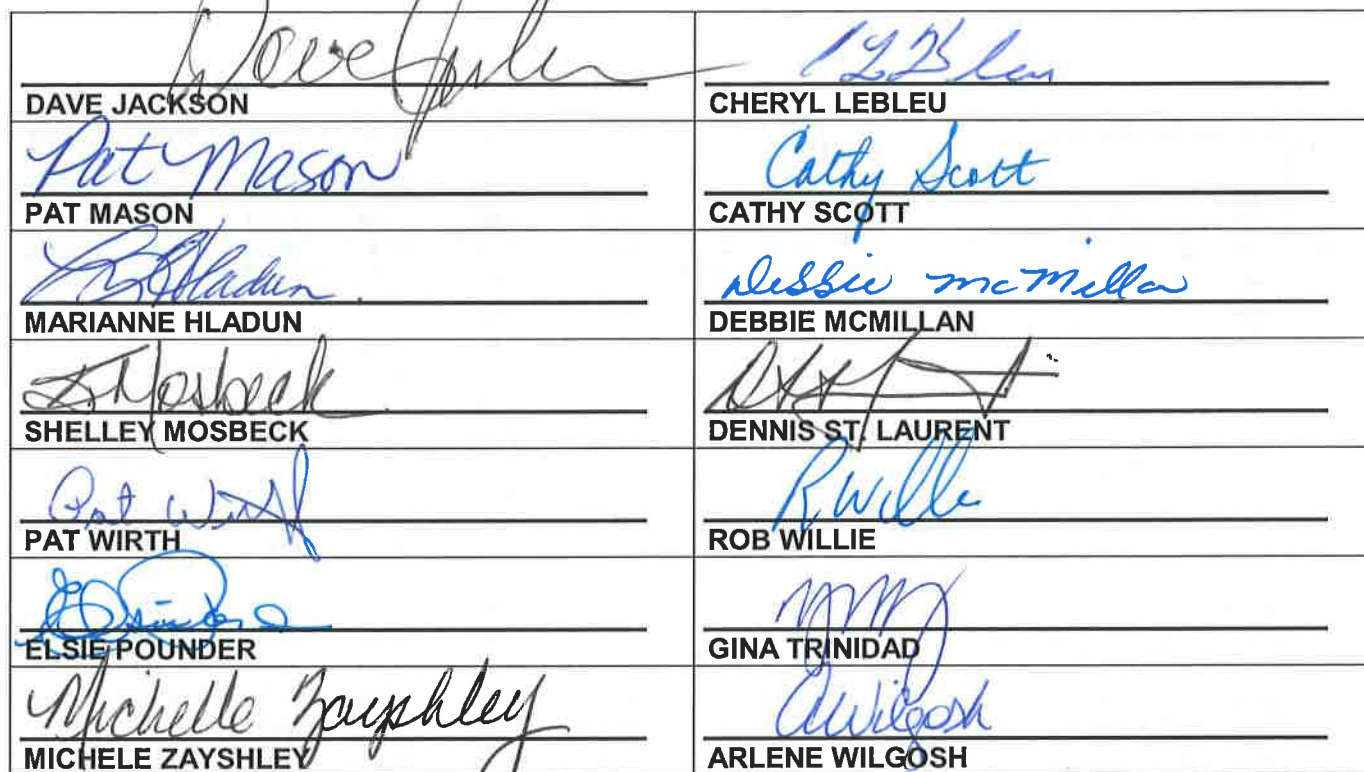 Dave Jackson
DAVE JACKSON
CHERYL LEBLEU
Pat Mason
PAT MASON
Cathy Scott
CATHY SCOTT
Hladun
MARIANNE HLADUN
Debbie McMillan
DEBBIE MCMILLAN
S Mosbeck
SHELLEY MOSBECK
DENNIS ST. LAURENT
Pat Wirth
PAT WIRTH
R Willie
ROB WILLIE
ELSIE POUNDER
GINA TRINIDAD
Michelle Zayshley
MICHELE ZAYSHLEY
A Wilgosh
ARLENE WILGOSH